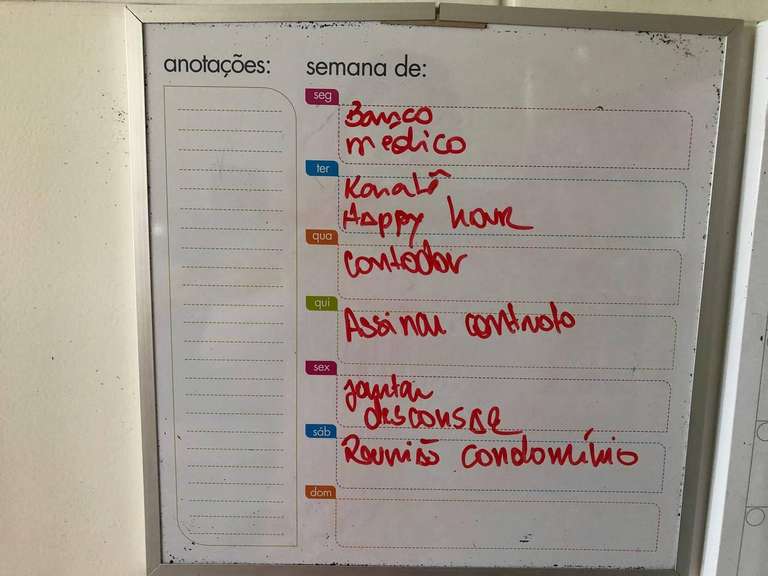 anotações:
semana de:
seg
Banco
medico
ter
Karatê
Happy hour
qua
contador
qui
Assinar contrato
sex
jantar
descansar
sáb
Reunião condomínio
dom